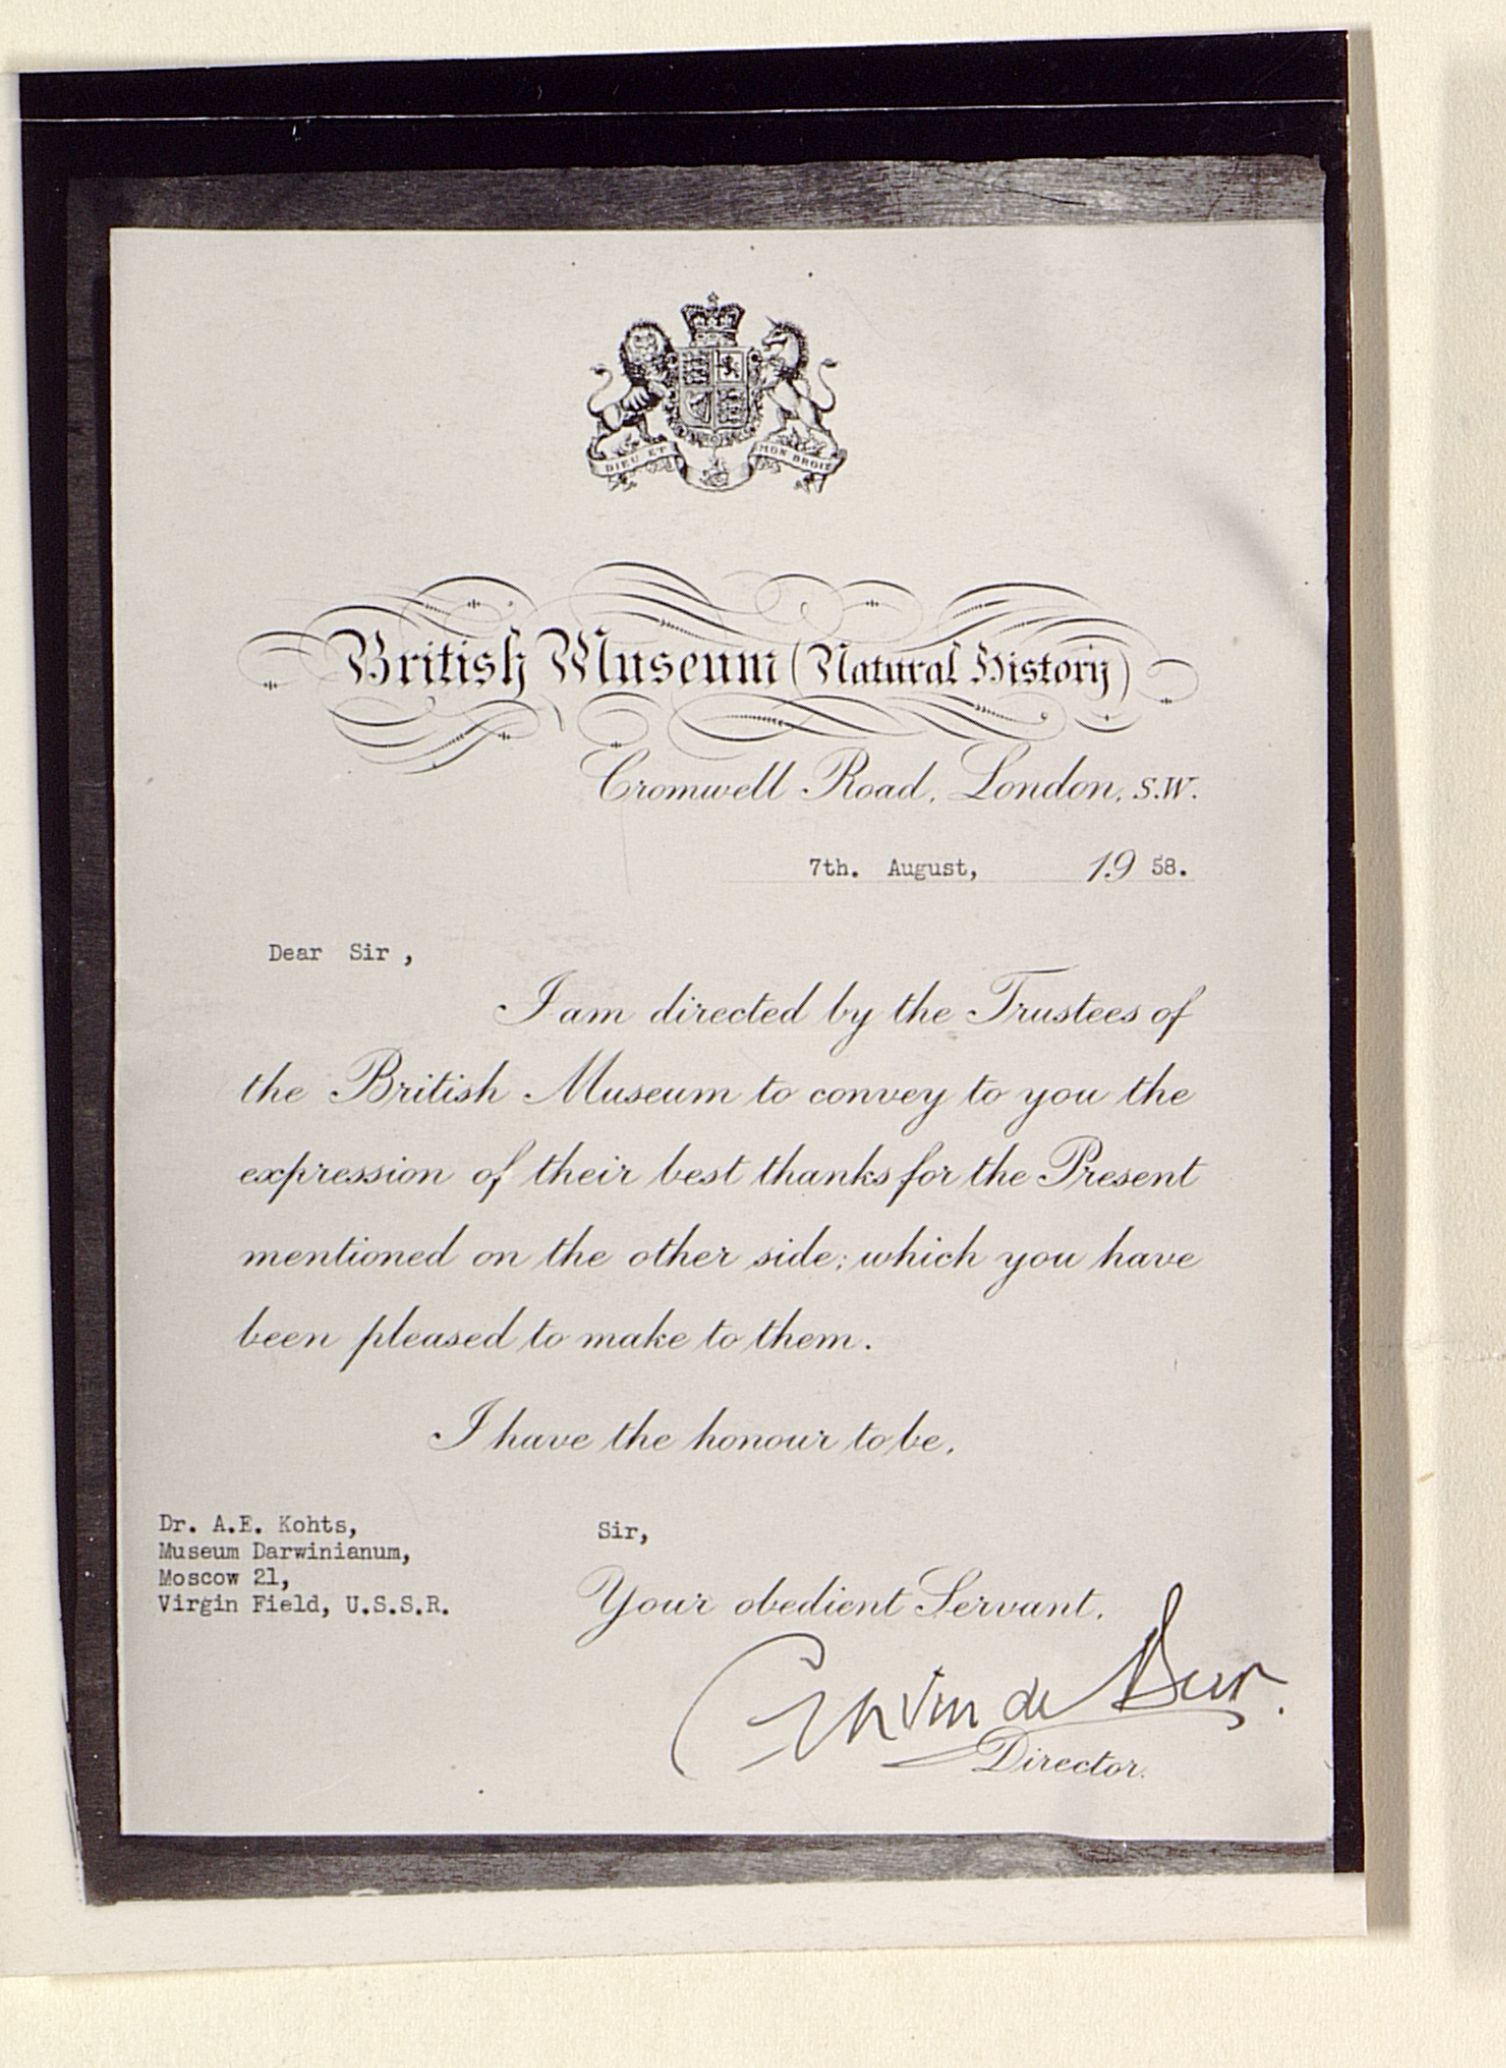 DIEU ET MON DROIT
British Museum (Natural History)
Cromwell Road, London, S.W.
7th. August, 1958.
Dear Sir,
I am directed by the Trustees of
the British Museum to convey to you the
expression of their best thanks for the Present
mentioned on the other side; which you have
been pleased to make to them.
I have the honour to be,
Dr. A.E. Kohts,
Museum Darwinianum,
Moscow 21,
Virgin Field, U.S.S.R.
Sir,
Your obedient Servant,
Gavin de Beer.
Director.